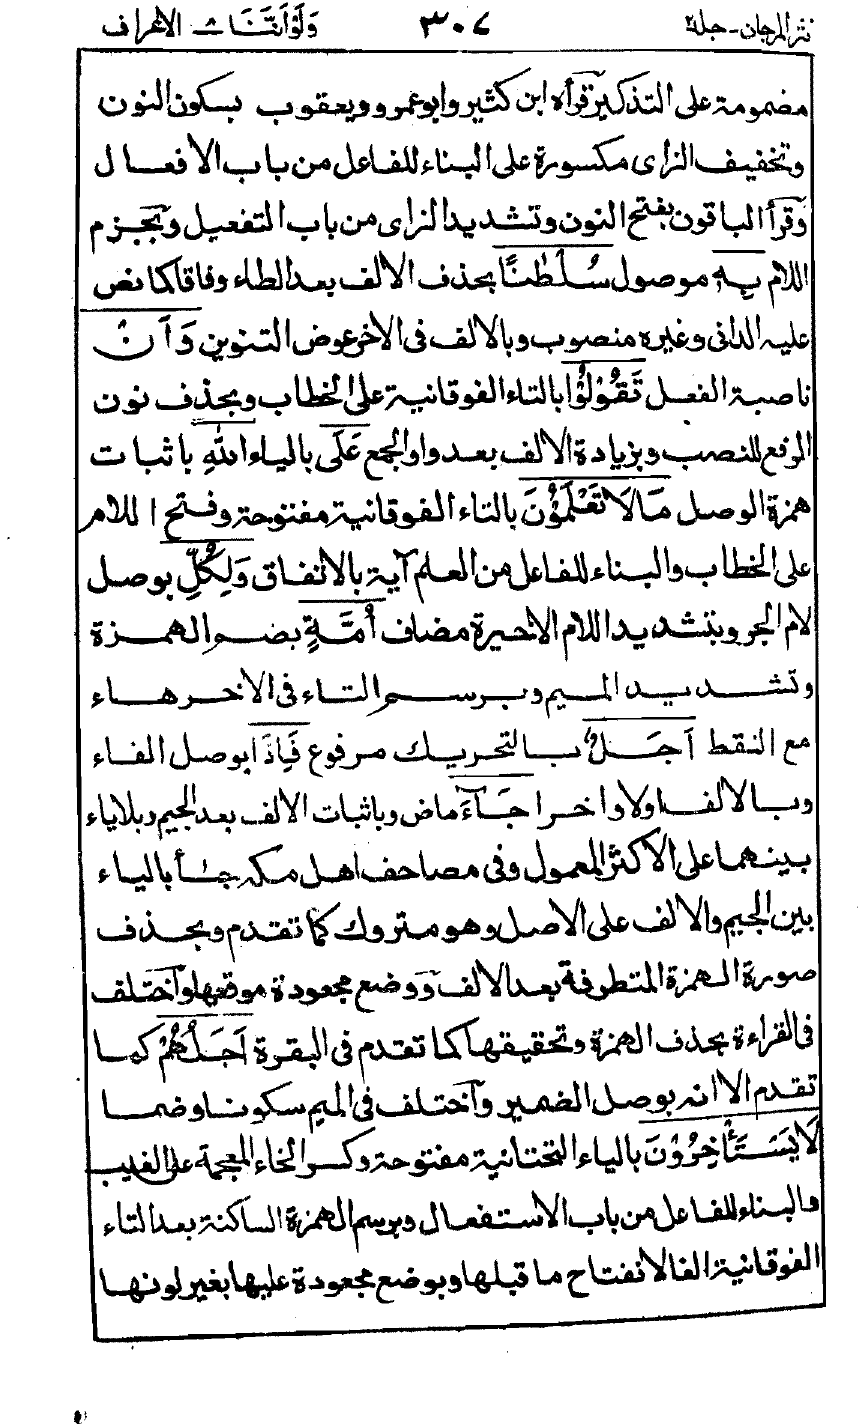 نثر المرجان - جلد ٢ ٣٠٧ وَلَوْاَنَّنَا ٨ الاعراف
مضمومة على التذكير قرأه ابن كثير وابو عمرو ويعقوب بسكون النون
وتخفيف الزاى مكسورة على البناء للفاعل من باب الافعال
وقرأ الباقون بفتح النون وتشديد الزاى من باب التفعيل وبجزم
اللام بِهٖ موصول سُلْطٰنًا بحذف الالف بعد الطاء وفاقا كما نص
عليه الدانى وغيره منصوب وبالالف فى الاخر عوض التنوين وَاَنْ
ناصبة الفعل تَقُوْلُوْا بالتاء الفوقانية على الخطاب وبحذف نون
الرفع للنصب وبزيادة الالف بعد واو الجمع عَلَى بالياء اللّٰهِ باثبات
همزة الوصل مَالَا تَعْلَمُوْنَ بالتاء الفوقانية مفتوحة وفتح اللام
على الخطاب والبناء للفاعل من العلم آية بالاتفاق وَلِكُلِّ بوصل
لام الجر وبتشديد اللام الاخيرة مضاف اُمَّةٍ بضم الهمزة
وتشديد الميم وبرسم التاء فى الاخر هاء
مع النقط اَجَلٌ بالتحريك مرفوع فَاِذَا بوصل الفاء
وبالالف اولا واخرا جَآءَ ماض وباثبات الالف بعد الجيم وبلاياء
بينهما على الاكثر المعمول وفى مصاحف اهل مكه جىأ بالياء
بين الجيم والالف على الاصل وهو متروك كما تقدم وبحذف
صورة الهمزة المتطرفة بعد الالف ووضع مجعودة موقعها واختلف
فى القراءة بحذف الهمزة وتحقيقها كما تقدم فى البقرة اَجَلُهُمْ كما
تقدم الا انه بوصل الضمير واختلف فى الميم سكونا وضما
لَا يَسْتَأْخِرُوْنَ بالياء التحتانية مفتوحة وكسر الخاء المعجمة على الغيب
والبناء للفاعل من باب الاستفعال وبرسم الهمزة الساكنة بعد التاء
الفوقانية الفا لانفتاح ما قبلها وبوضع مجعودة عليها بغير لونها